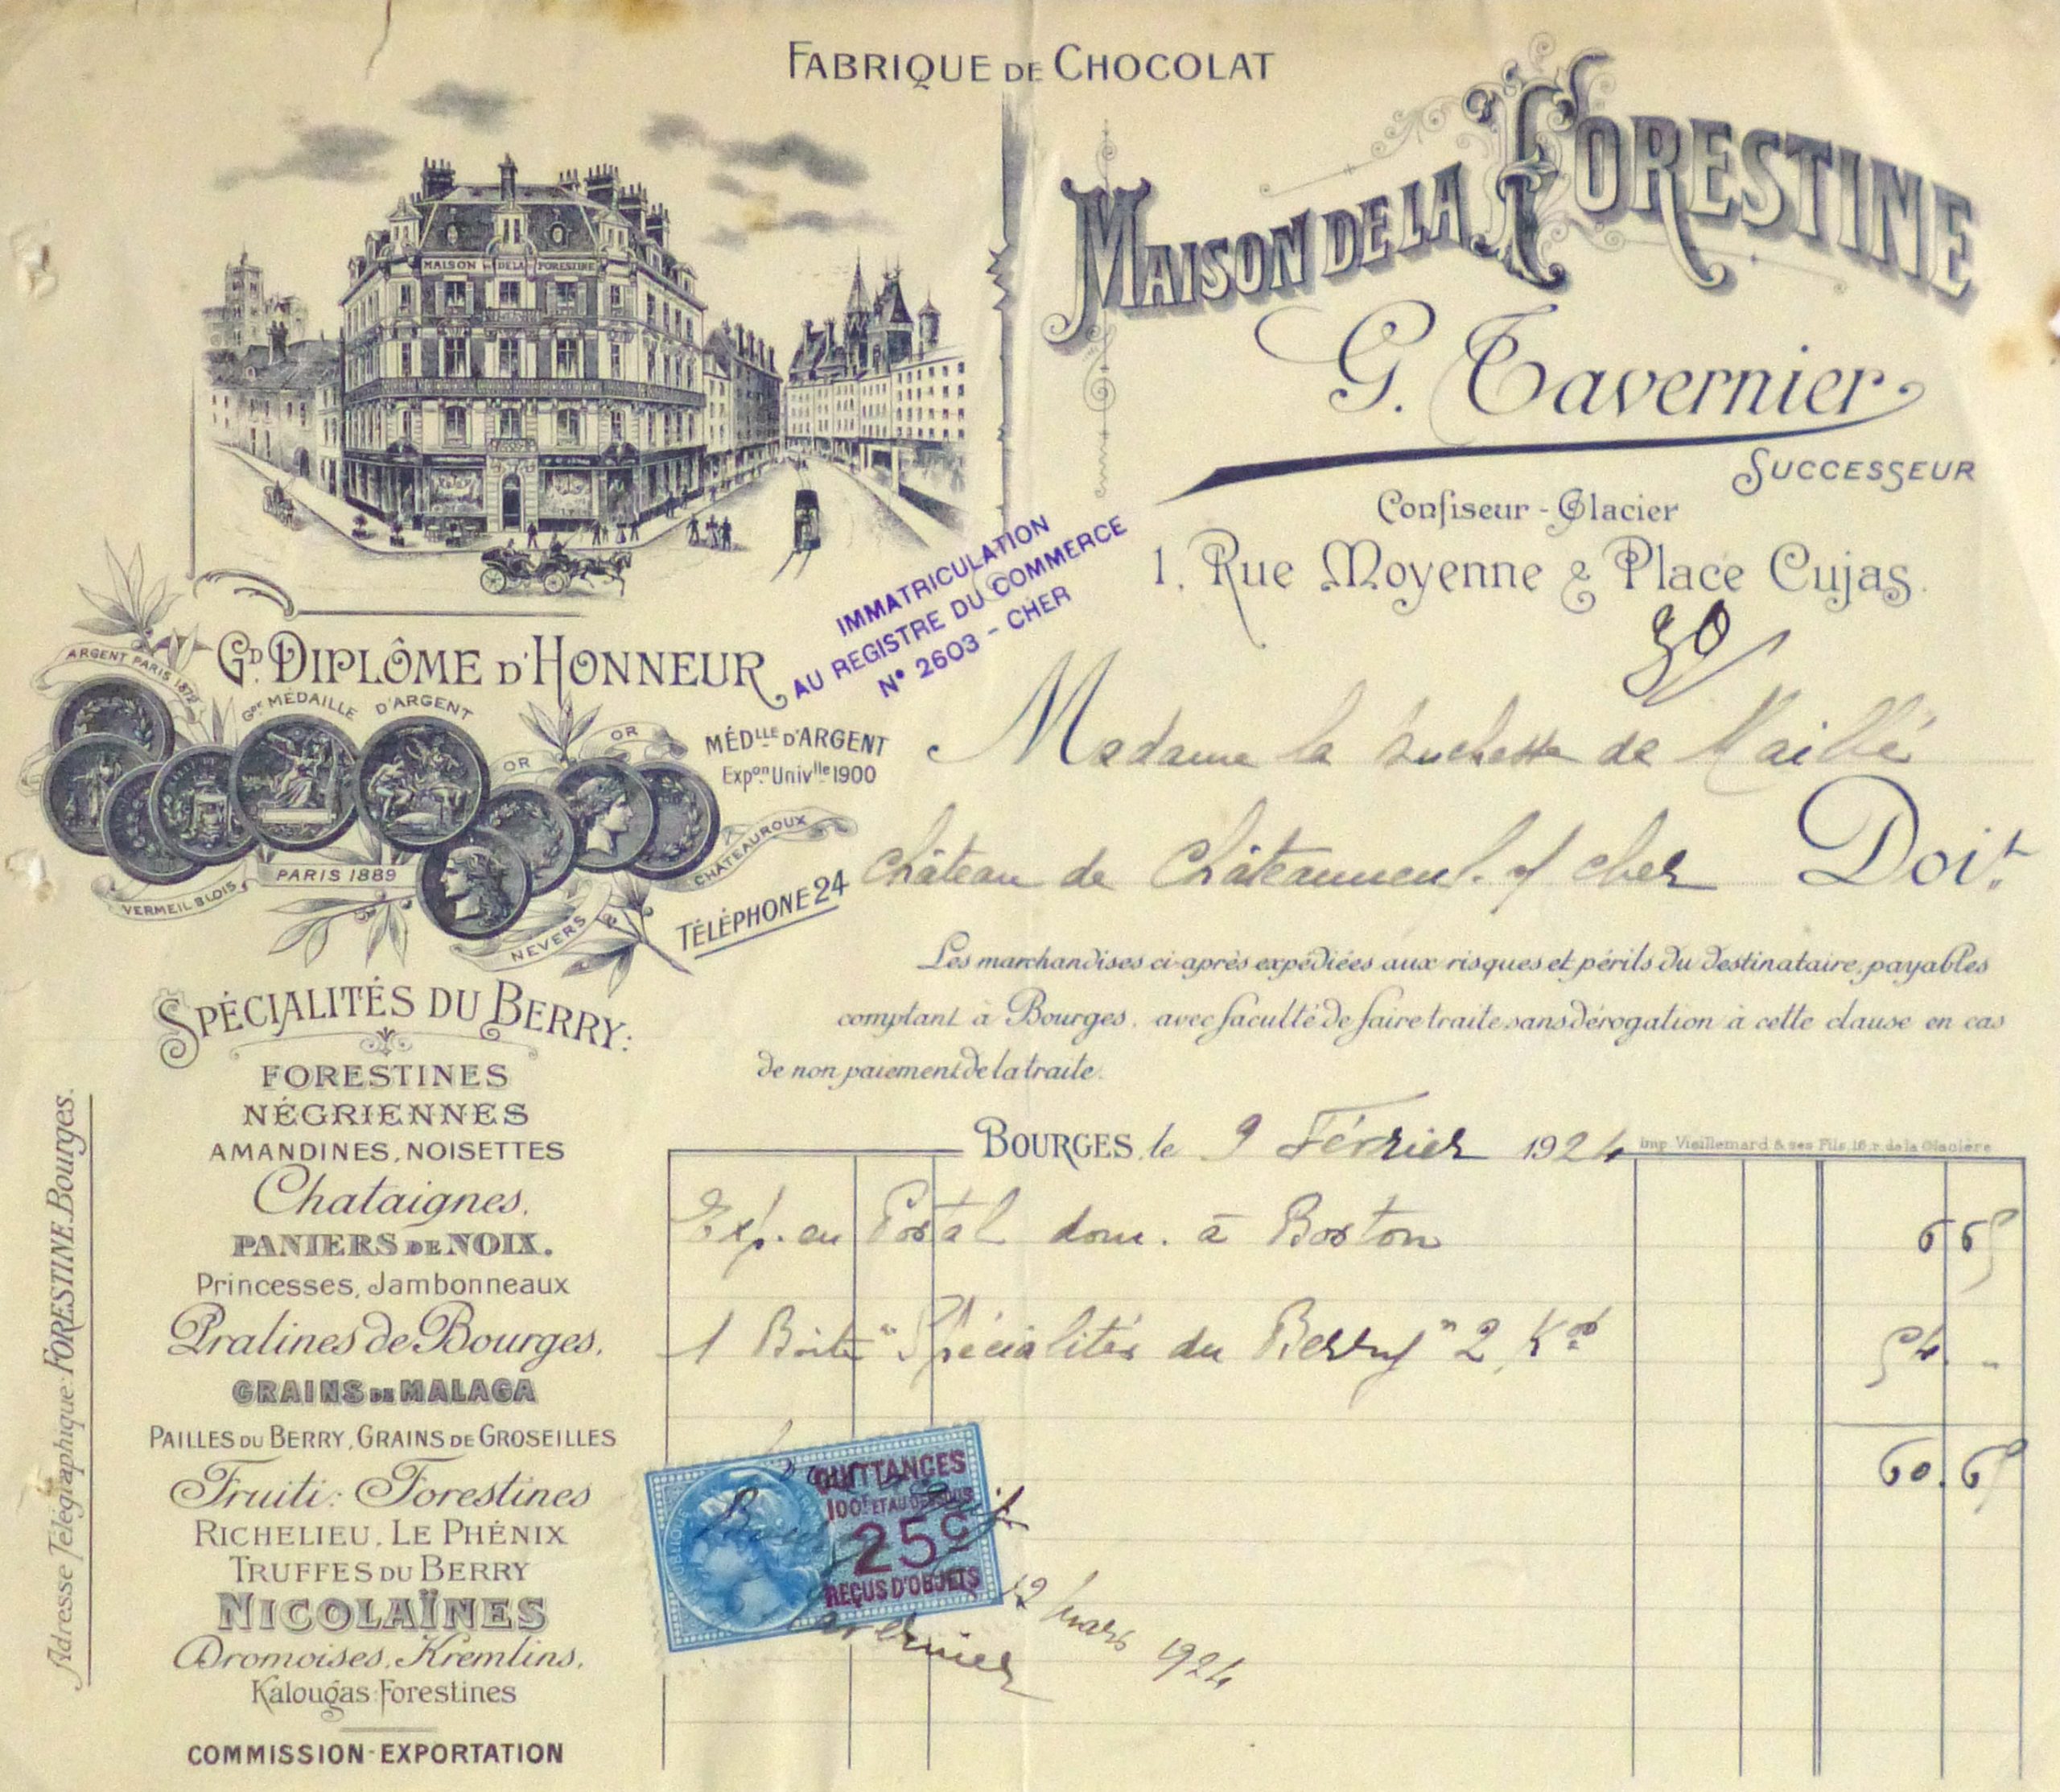 FABRIQUE DE CHOCOLAT
MAISON DE LA FORESTINE
MAISON DE LA FORESTINE
G. Tavernier
SUCCESSEUR
Confiseur - Glacier
1, Rue Moyenne & Place Cujas.
IMMATRICULATION
AU REGISTRE DU COMMERCE
N° 2603 - CHER
30/
GD. DIPLÔME D'HONNEUR
ARGENT PARIS 1878
Gde MÉDAILLE D'ARGENT
OR
OR
MÉDLLE D'ARGENT
Expon. Univlle 1900
VERMEIL BLOIS
PARIS 1889
NEVERS
CHÂTEAUROUX
TÉLÉPHONE 24
Madame la duchesse de Maillé
Château de Châteauneuf s/ cher Doit
Les marchandises ci-après expédiées aux risques et périls du destinataire, payables
comptant à Bourges, avec faculté de faire traite sans dérogation à cette clause en cas
de non paiement de la traite.
SPÉCIALITÉS DU BERRY:
FORESTINES
NÉGRIENNES
AMANDINES, NOISETTES
Chataignes,
PANIERS DE NOIX.
Princesses, Jambonneaux
Pralines de Bourges,
GRAINS DE MALAGA
PAILLES DU BERRY, GRAINS DE GROSEILLES
Fruiti: Forestines
RICHELIEU, LE PHÉNIX
TRUFFES DU BERRY
NICOLAÏNES
Dromoises, Kremlins,
Kalougas: Forestines
COMMISSION - EXPORTATION
Adresse Télégraphique: FORESTINE. Bourges.
BOURGES, le 9 Février 1924
Imp. Vieillemard & ses Fils, 16, r. de la Glacière
Exp. en Postal dom. à Boston 6 65
1 Boite "Spécialités du Berry" 2 Kos 54. "
60. 65
QUITTANCES
100F ET AU DESSOUS
25c
REÇUS D'OBJETS
12 mars 1924
Tavernier